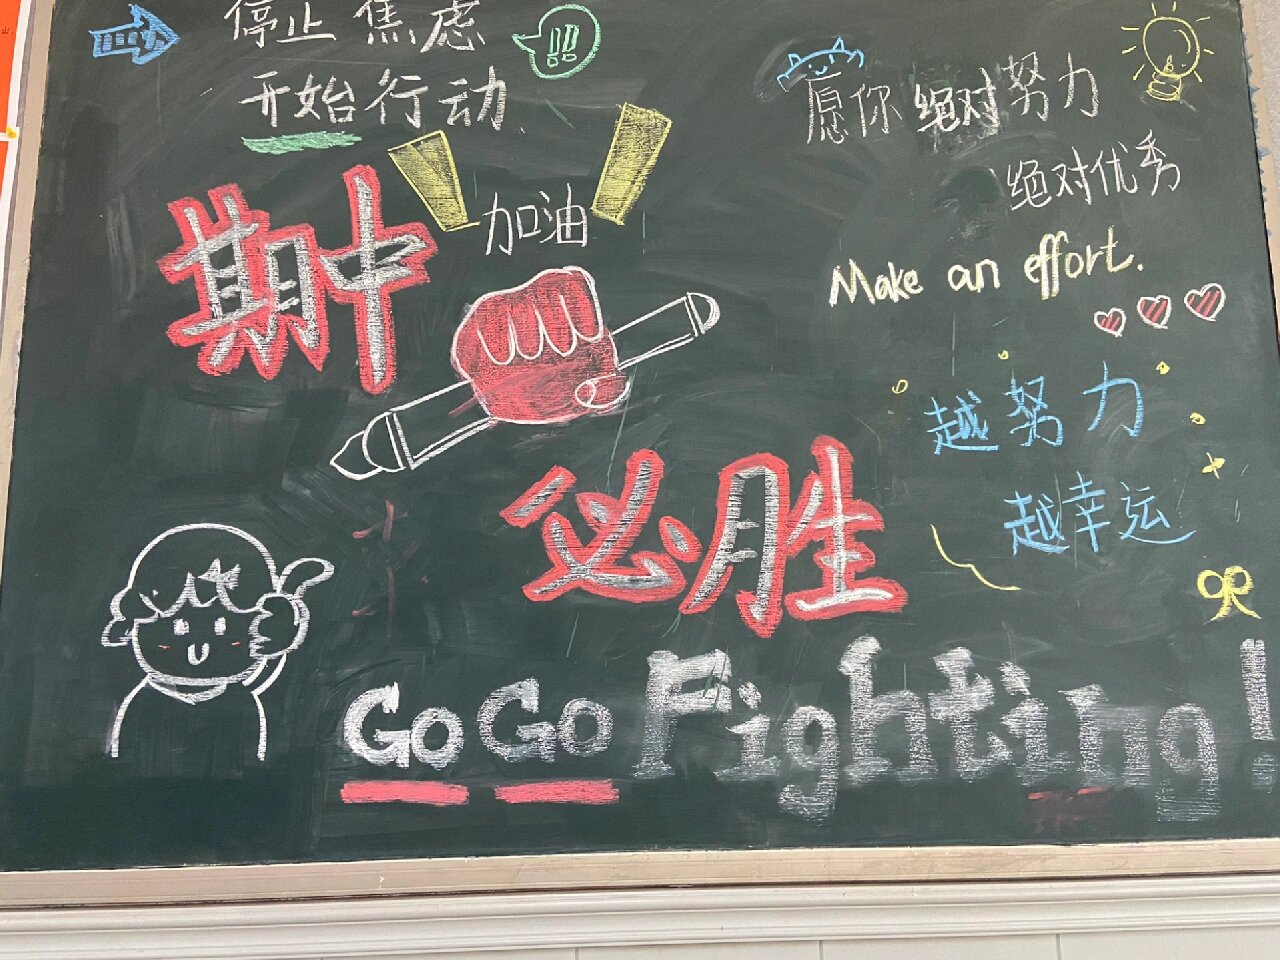 停止焦虑
开始行动
!!
期中
加油
必胜
愿你绝对努力
绝对优秀
Make an effort.
越努力
越幸运
Go Go Fighting!